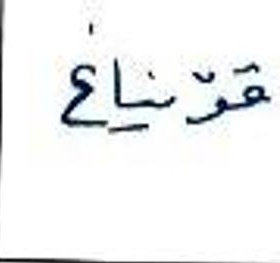 قوّنياغ